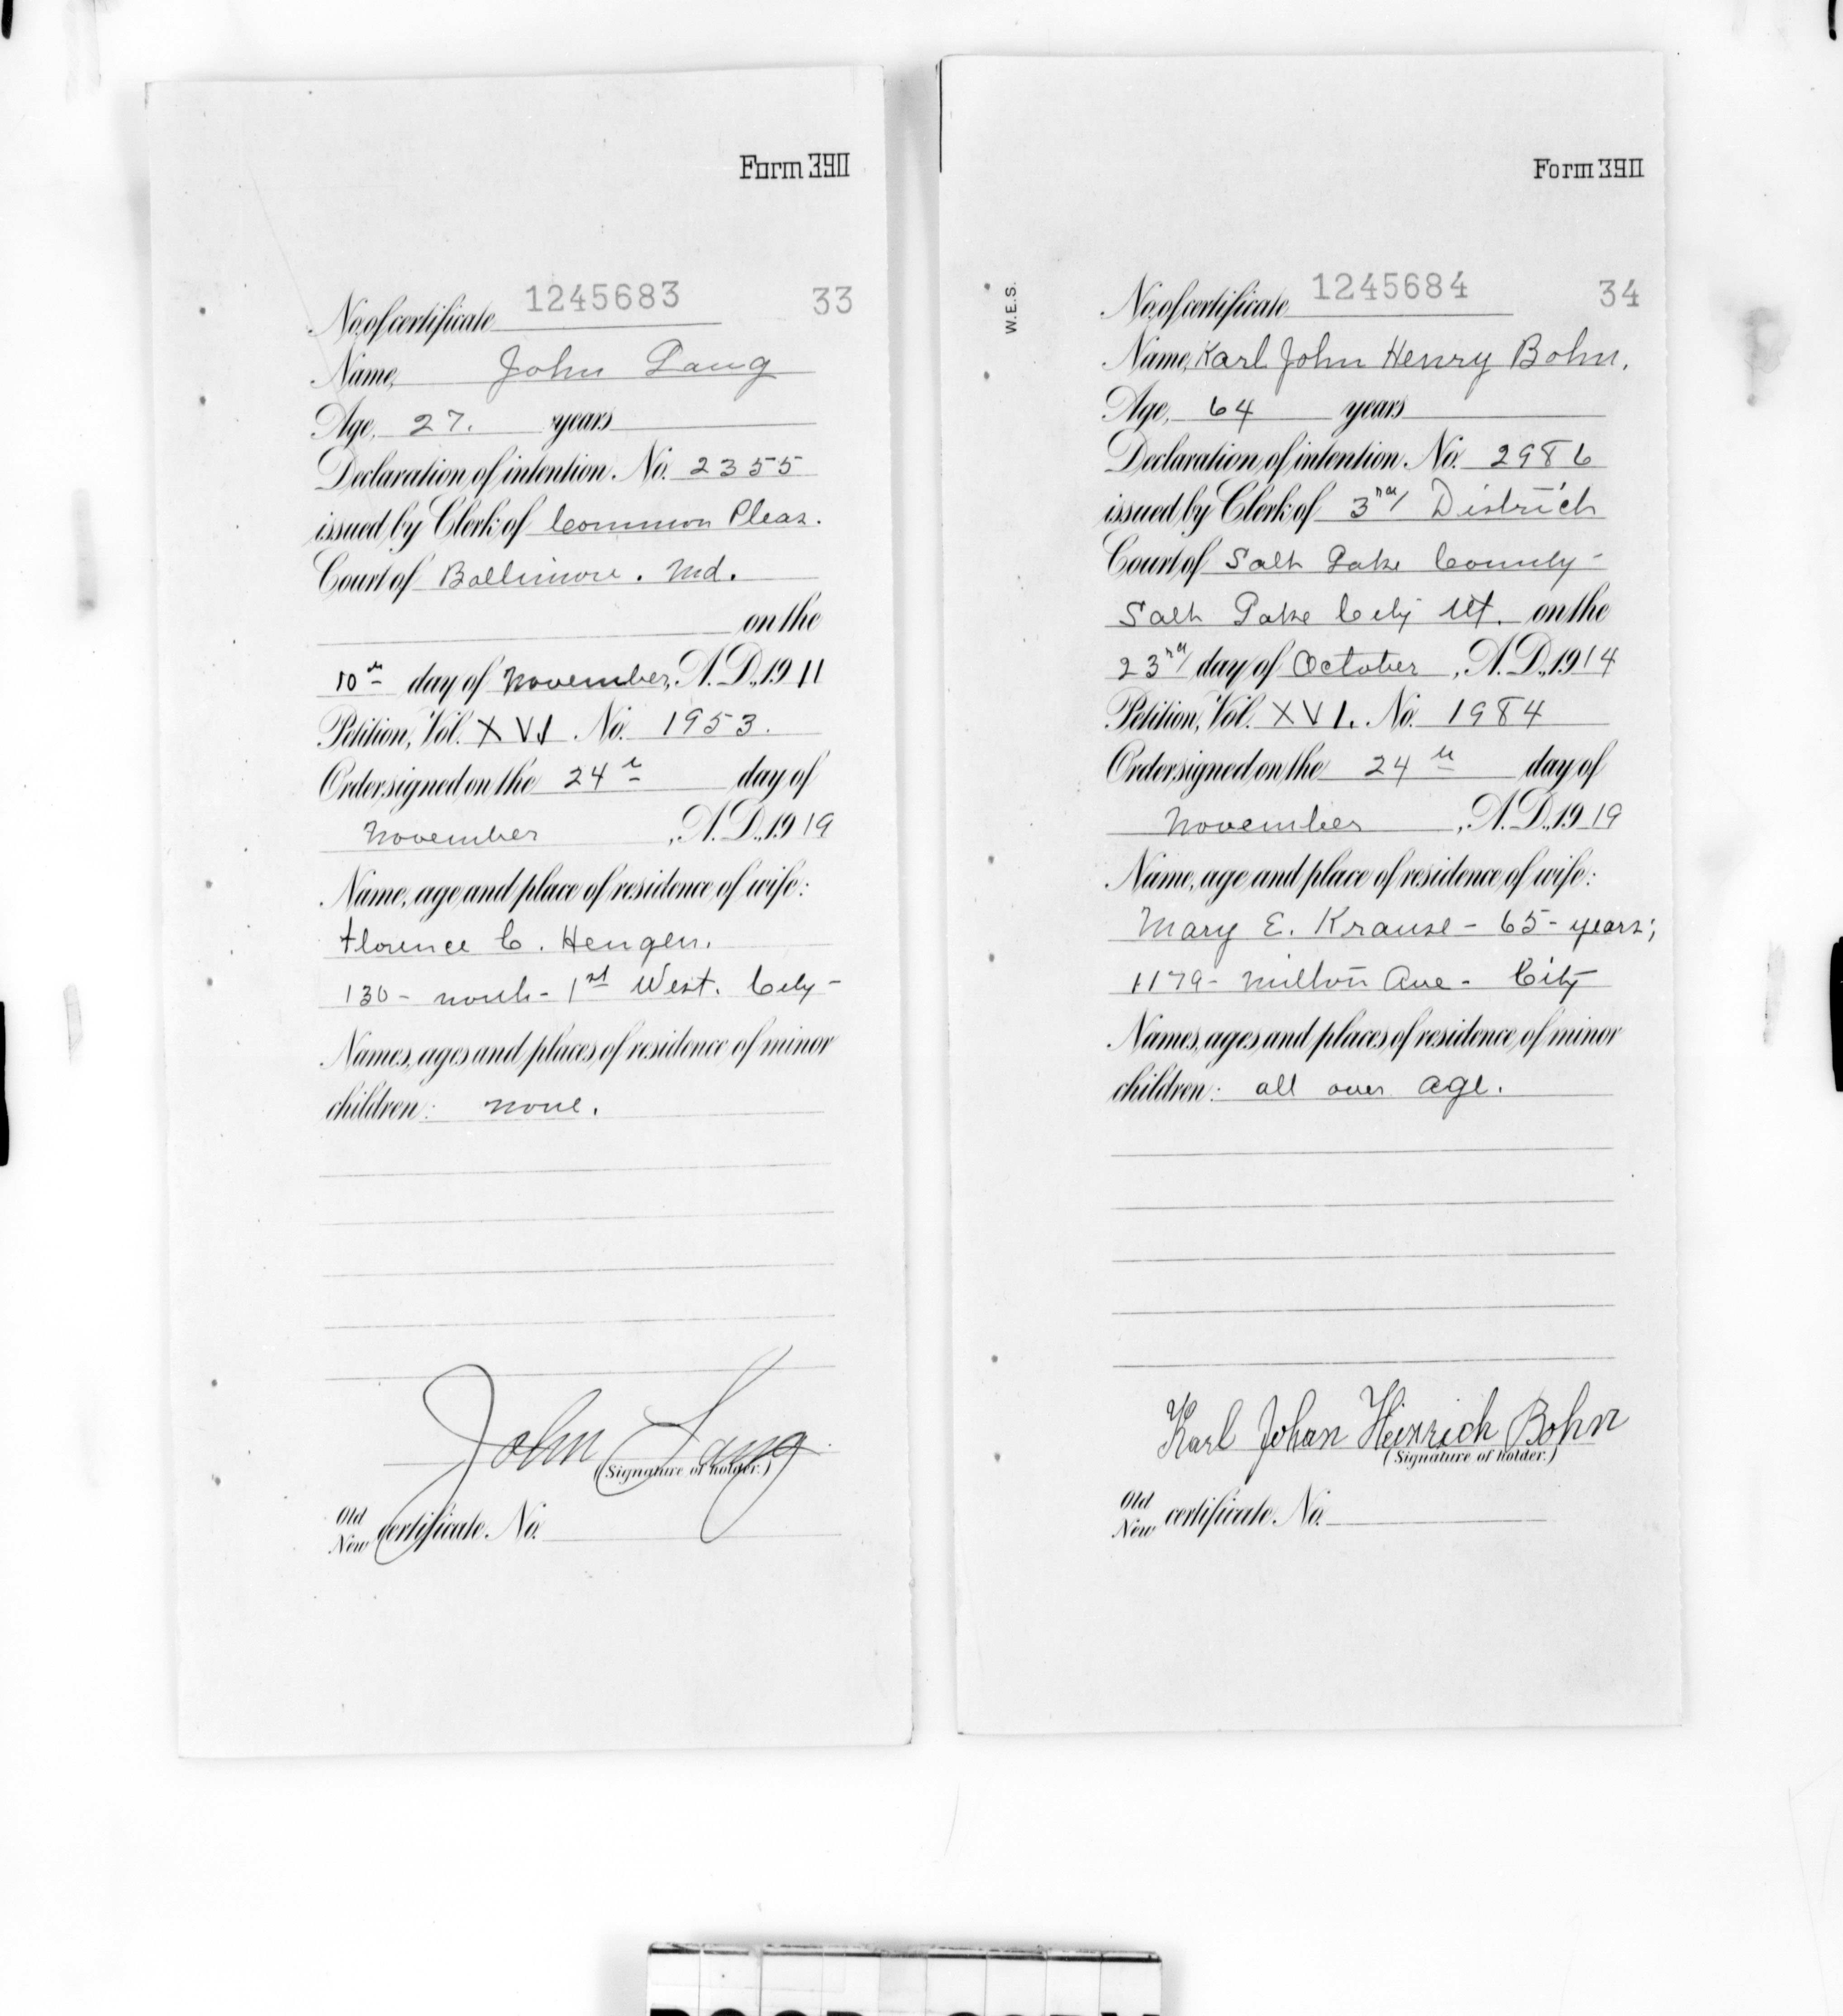 Form 390
No. of certificate 1245683 33
Name, John Lang
Age, 27. years
Declaration of intention No. 2355
issued by Clerk of Common Pleas.
Court of Baltimore. Md.
on the
10th day of November, A.D., 1911
Petition, Vol. XVI. No. 1953.
Order signed on the 24th day of
November, A.D., 1919
Name, age and place of residence of wife:
Florence C. Hengen.
130 - north - 1st West. City -
Names, ages and places of residence of minor
children: none.
John Lang
(Signature of holder.)
Old
New certificate No.
Form 390
W.E.S.
No. of certificate 1245684 34
Name, Karl John Henry Bohn.
Age, 64 years
Declaration of intention No. 2986
issued by Clerk of 3rd District
Court of Salt Lake County -
Salt Lake City Ut. on the
23rd day of October, A.D., 1914
Petition, Vol. XVI. No. 1984
Order signed on the 24th day of
November, A.D., 1919
Name, age and place of residence of wife:
Mary E. Krause - 65 - years;
1179 - Milton Ave - City
Names, ages and places of residence of minor
children: all over age.
Karl Johan Heinrich Bohn
(Signature of holder.)
Old
New certificate No.